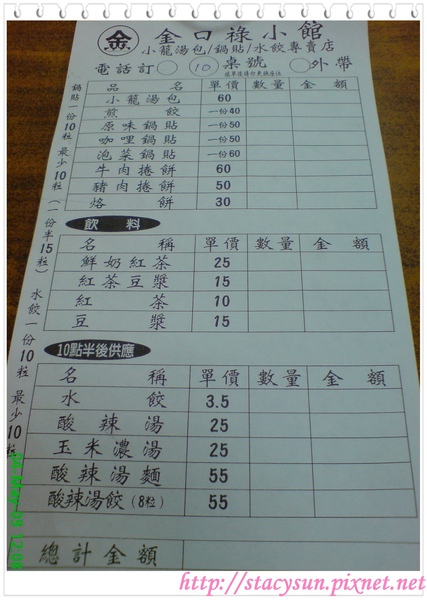 金 金口祿小館
小籠湯包/鍋貼/水餃專賣店
電話訂○ 10 桌號 ○外帶
品 名 單價 數量 金 額
小籠湯包 60
煎餃 一份40
原味鍋貼 一份50
咖哩鍋貼 一份50
泡菜鍋貼 一份60
牛肉捲餅 60
豬肉捲餅 50
烙餅 30
飲料
名 稱 單價 數量 金 額
鮮奶紅茶 25
紅茶豆漿 15
紅茶 10
豆漿 15
10點半後供應
名 稱 單價 數量 金 額
水餃 3.5
酸辣湯 25
玉米濃湯 25
酸辣湯麵 55
酸辣湯餃(8粒) 55
總計金額
鍋貼一份10粒 最少10粒(一份半15粒) 水餃一份10粒 最少10粒
http://stacysun.pixnet.net